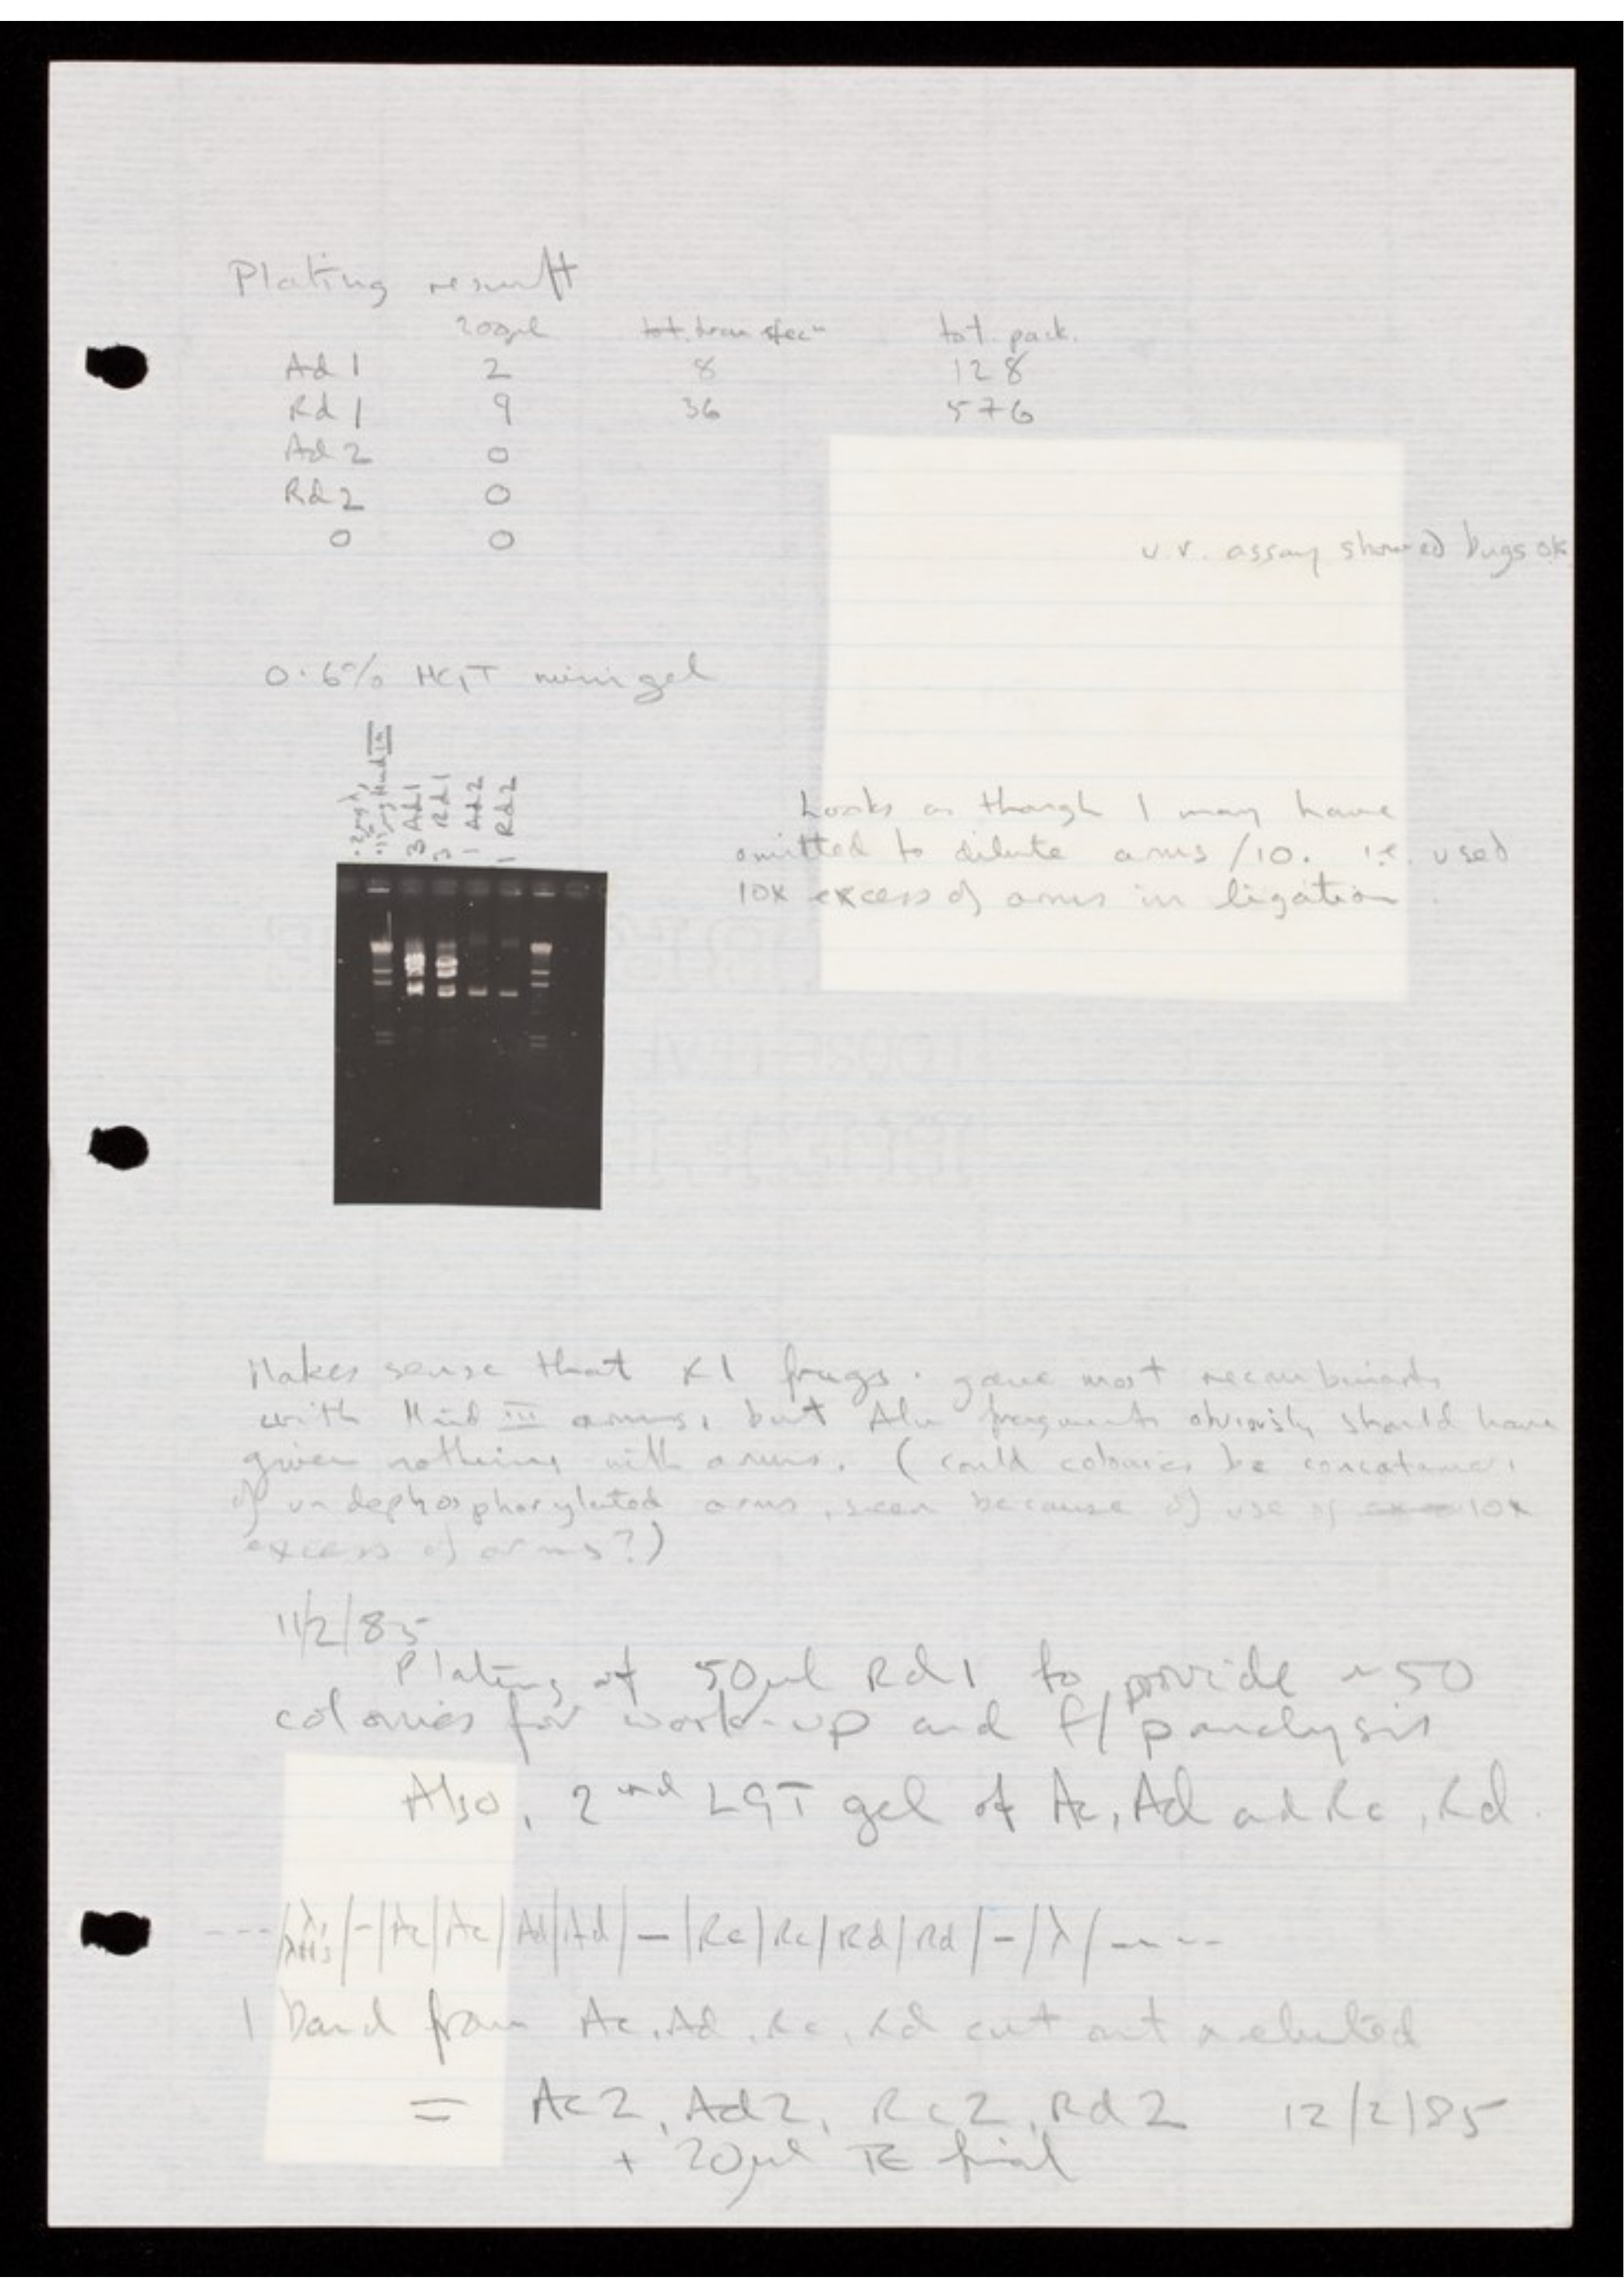 Plating result
200µl tot. transfecⁿ tot. pack.
Ad 1 2 8 128
Rd 1 9 36 576
Ad 2 0
Rd 2 0
0 0
u.v. assay showed bugs ok
0.6% HGT minigel
.2µg λ,
.1µg Hind III
3 Ad1
3 Rd1
1 Ad2
1 Rd2
Looks as though I may have
omitted to dilute arms /10. i.e. used
10x excess of arms in ligation.
Makes sense that x1 frags. gave most recombinants
with Hind III arms, but Alu fragments obviously should have
given nothing with arms. (could colonies be concatamers
of undephosphorylated arms, seen because of use of 10x
excess of arms?)
11/2/85
Plating of 50µl Rd1 to provide ~50
colonies for work-up and f/p analysis
Also, 2nd LGT gel of Ac, Ad and Rc, Rd.
---/λ/-|Ac|Ac|Ad|Ad|-|Rc|Rc|Rd|Rd|-/λ/----
1 band from Ac, Ad, Rc, Rd cut out & eluted
= Ac2, Ad2, Rc2, Rd2 12/2/85
+ 20µl TE final